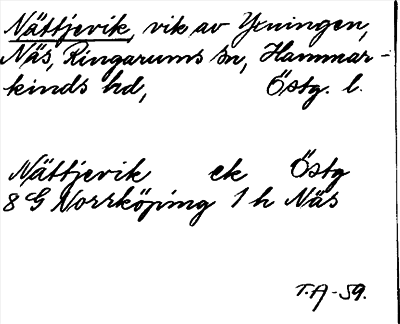 Nättjevik, vik av Yxningen,
Näs, Ringarums sn, Hammar-
kinds hd, Östg. l.
Nättjevik ek Östg
8 G Norrköping 1 h Näs
T.A-59.